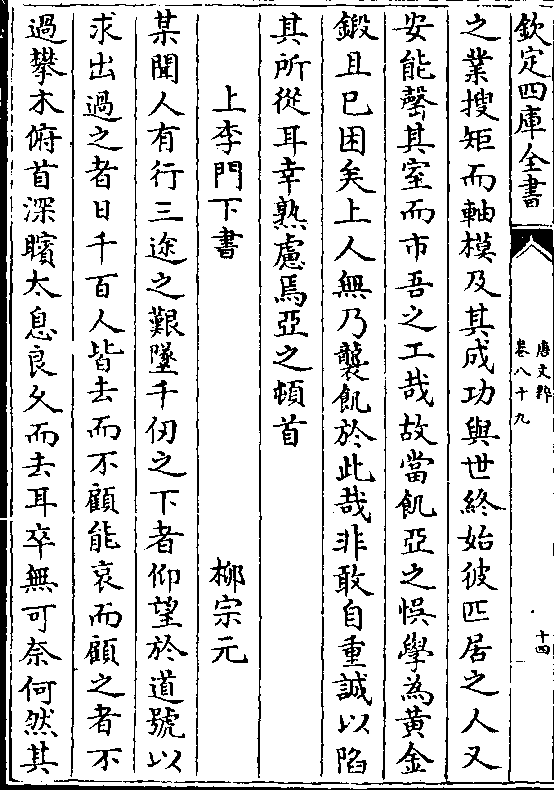 欽定四庫全書
唐文粹
卷八十九
十四
之業搜矩而軸模及其成功與世終始彼匹居之人又
安能罄其室而市吾之工哉故當飢亞之悞學為黄金
鍛且已困矣上人無乃襲飢於此哉非敢自重誠以陷
其所從耳幸熟慮焉亞之頓首
上李門下書 柳宗元
某聞人有行三途之艱墜千仞之下者仰望於道號以
求出過之者日千百人皆去而不顧能哀而顧之者不
過攀木俯首深矉太息良久而去耳卒無可奈何然其